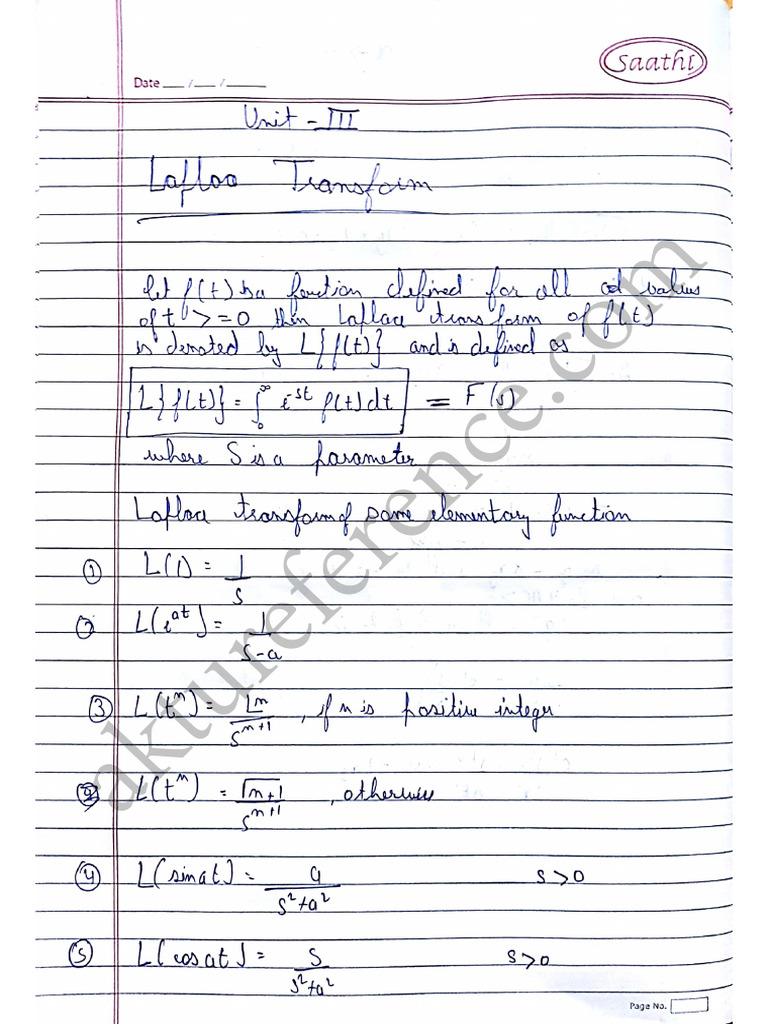 Saathi
Date __/__/____
Unit - III
Laplace Transform
let f(t) be a function defined for all values
of t >= 0 then Laplace transform of f(t)
is denoted by L{f(t)} and is defined as
L{f(t)} = ∫₀^∞ e^-st f(t) dt = F(s)
where S is a parameter
Laplace transform of some elementary function
① L(1) = 1/s
② L(e^at) = 1/(s-a)
③ L(t^n) = |n/s^(n+1) , if n is positive integer
L(t^n) = Γn+1/s^(n+1) , otherwise
④ L(sinat) = a/(s²+a²) s>0
⑤ L(cosat) = s/(s²+a²) s>0
Page No.
aktureference.com